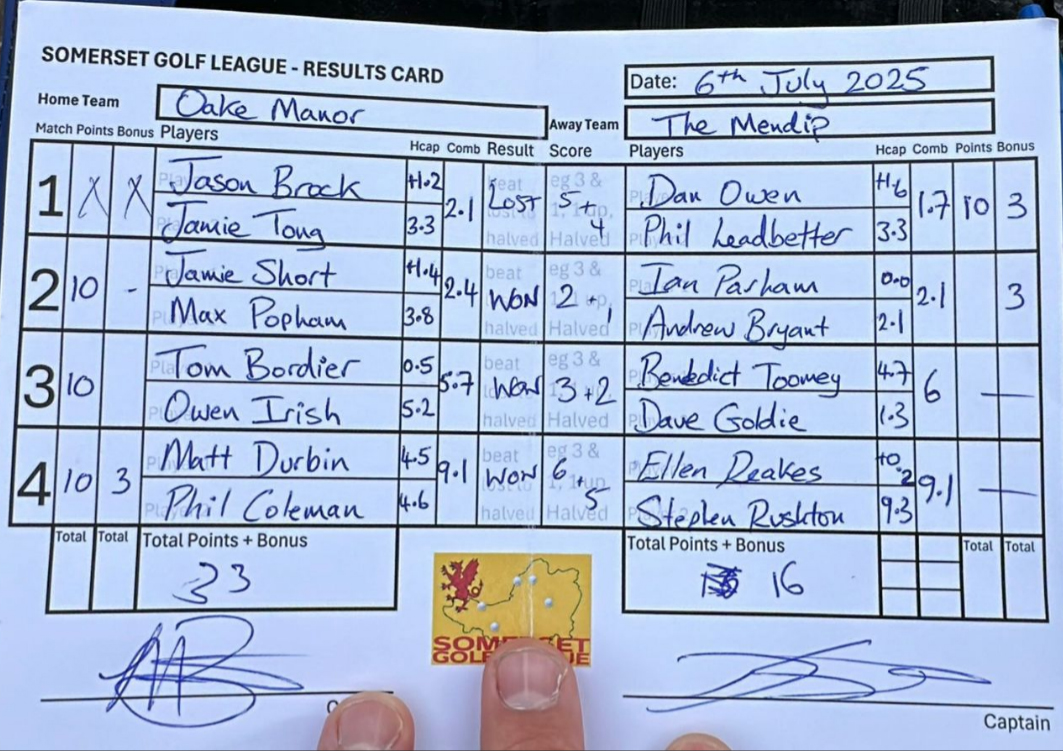 SOMERSET GOLF LEAGUE - RESULTS CARD
Date: 6th July 2025
Home Team Oake Manor
Away Team The Mendip
Match Points Bonus Players Hcap Comb Result Score Players Hcap Comb Points Bonus
1 X X Jason Brock +1.2 2.1 LOST 5+4 Dan Owen +1.6 1.7 10 3
Jamie Tong 3.3 Phil Leadbetter 3.3
2 10 - Jamie Short +1.4 2.4 WON 2+1 Ian Parham 0.0 2.1 3
Max Popham 3.8 Andrew Bryant 2.1
3 10 Tom Bordier 0.5 5.7 WON 3+2 Benedict Toomey 4.7 6 —
Owen Irish 5.2 Dave Goldie 1.3
4 10 3 Matt Durbin 4.5 9.1 WON 6+5 Ellen Deakes +0.2 9.1 —
Phil Coleman 4.6 Stephen Rushton 9.3
beat
halved
eg 3 &
Halved
beat
halved
eg 3 &
Halved
beat
halved
eg 3 &
Halved
beat
halved
eg 3 &
Halved
Total Total Total Points + Bonus
33
Total Points + Bonus Total Total
16
Captain